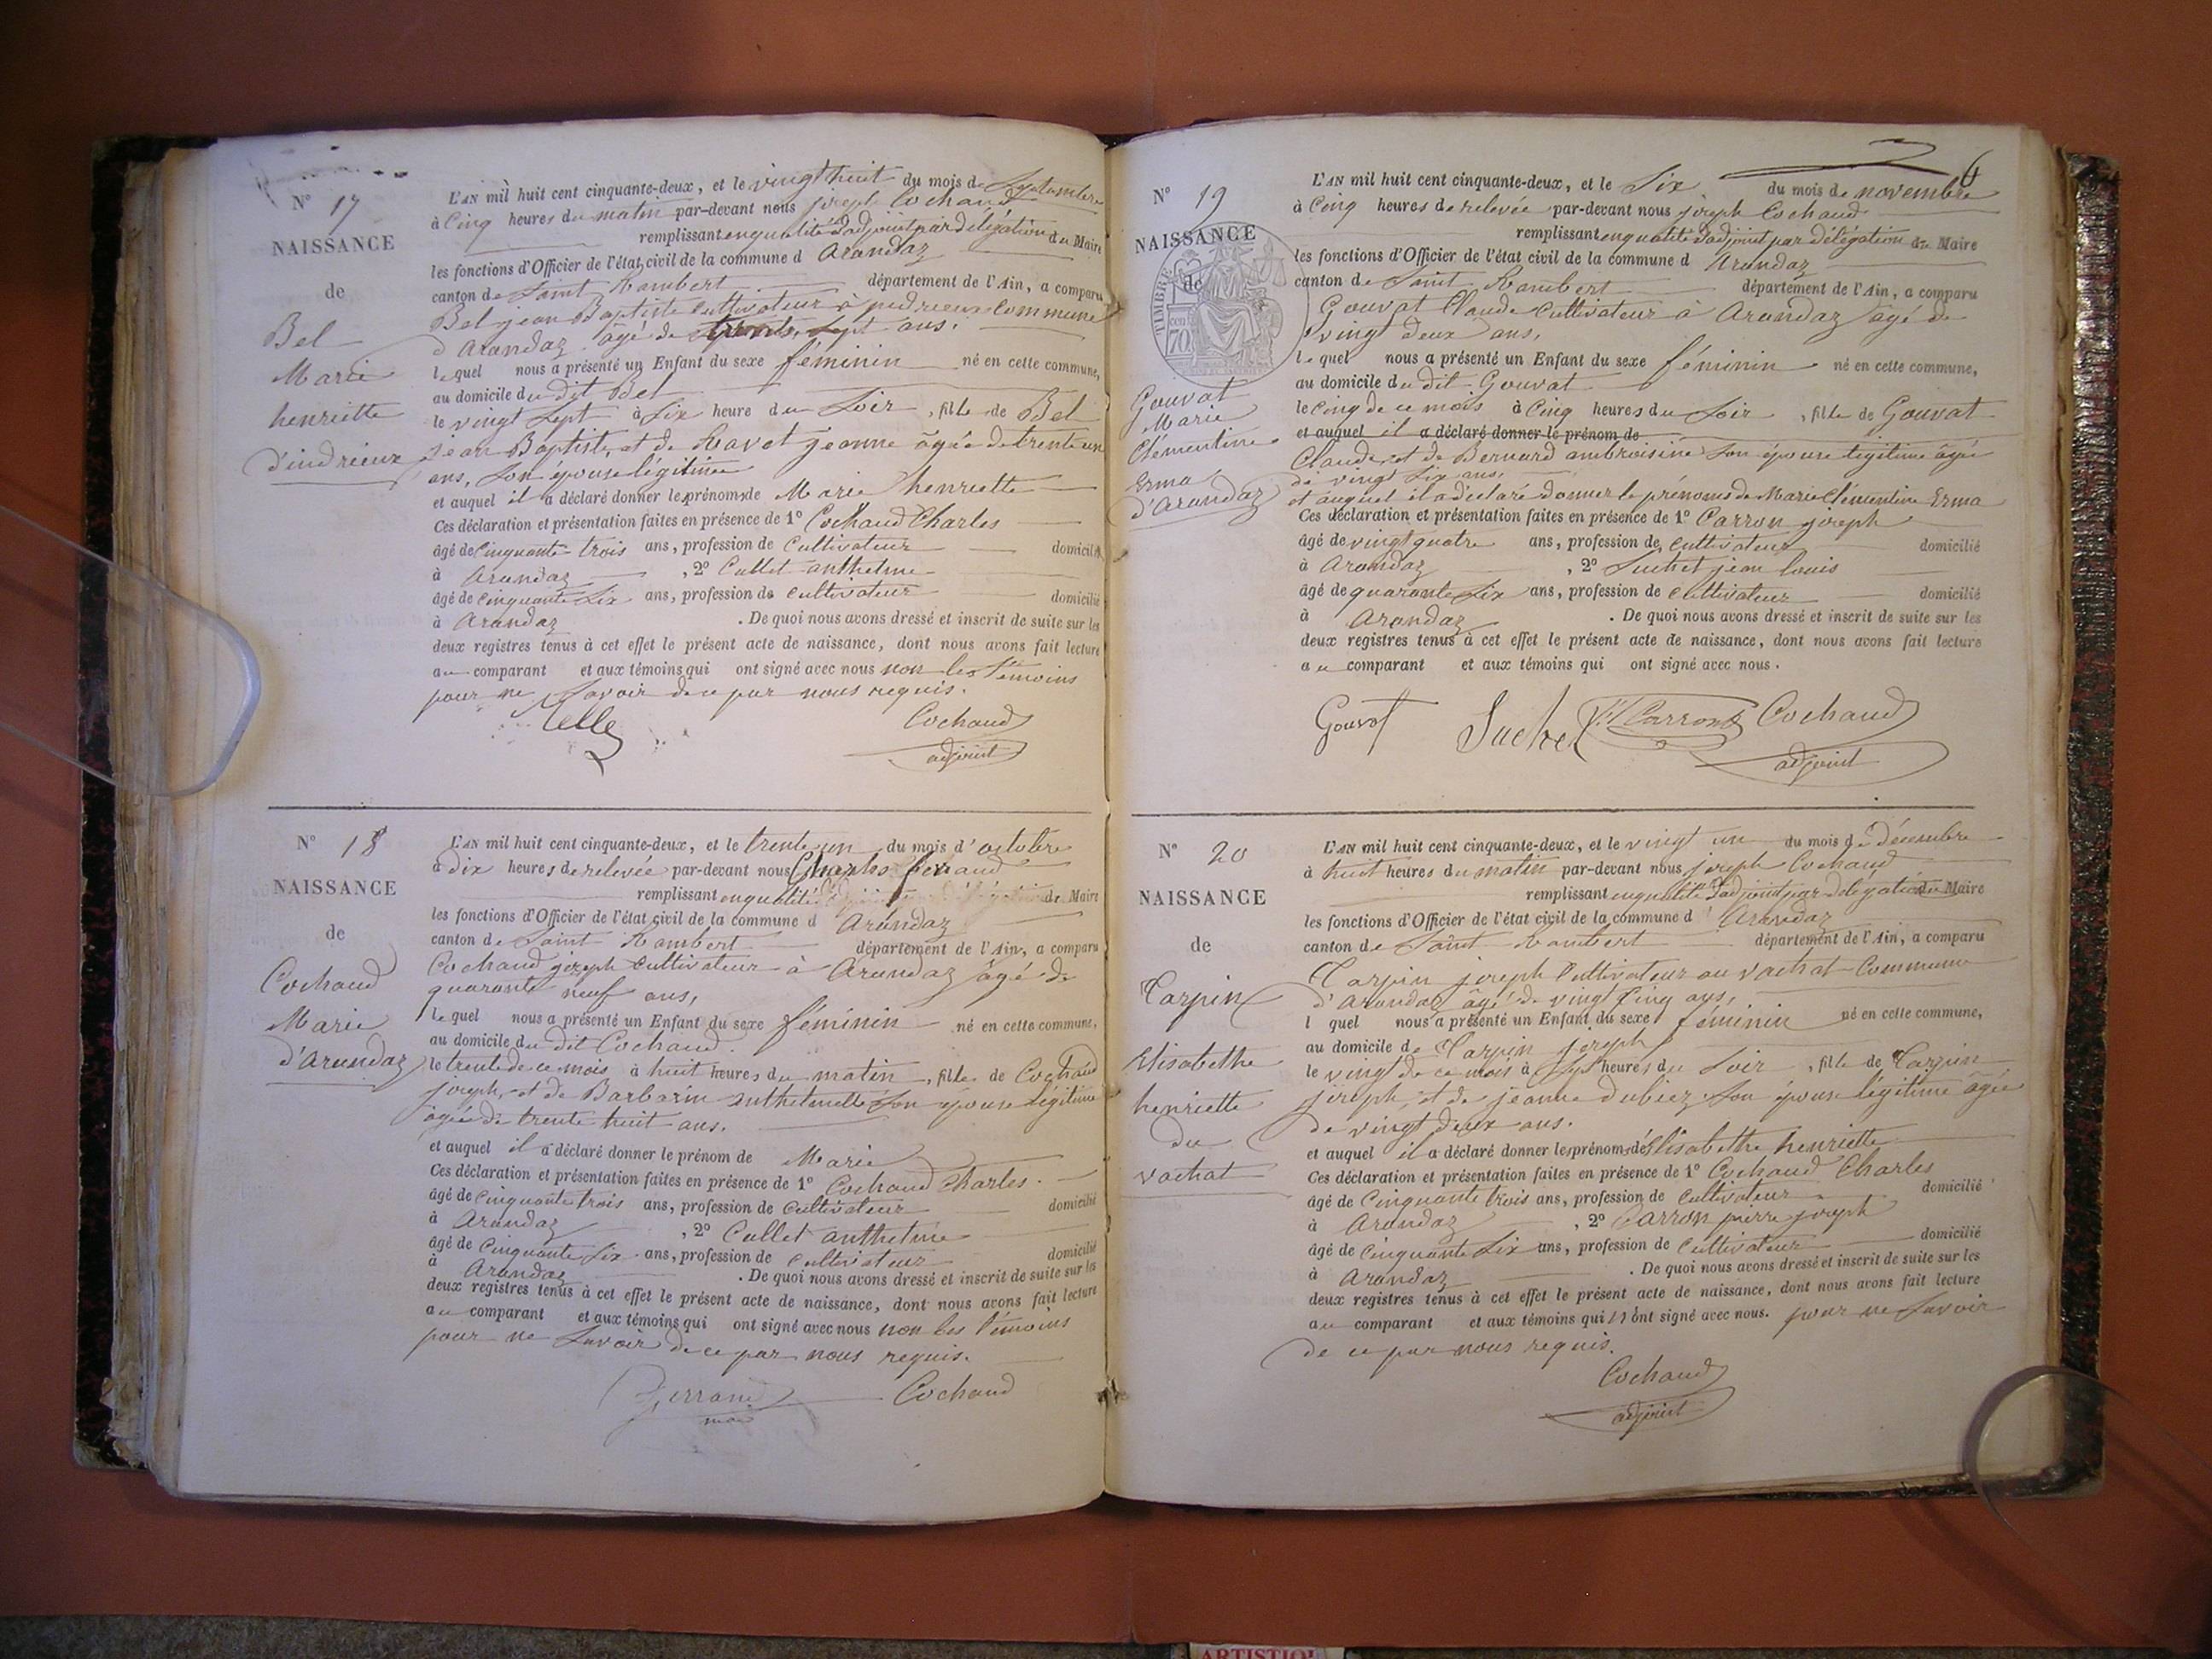 N° 17
NAISSANCE
de
Bel
Marie
henriette
d'indrieux
L'AN mil huit cent cinquante-deux, et le vingt huit du mois de Septembre
à Cinq heures du matin par-devant nous joseph Cochaud
remplissant en qualité d'adjoint par délégation du Maire
les fonctions d'Officier de l'état civil de la commune d Arandaz
canton de Saint Rambert département de l'Ain, a comparu
Bel jean Baptiste cultivateur à indrieux commune
d'Arandaz âgé de trente sept ans.
lequel nous a présenté un Enfant du sexe féminin né en cette commune,
au domicile du dit Bel
le vingt Sept à Six heure du Soir, fille de Bel
jean Baptiste, et de Ravet jeanne âgée de trente un
ans, Son épouse légitime
et auquel il a déclaré donner les prénoms de Marie henriette
Ces déclaration et présentation faites en présence de 1° Cochaud Charles
âgé de Cinquante-trois ans, profession de Cultivateur domicilié
à Arandaz, 2° Cullet anthelme
âgé de Cinquante Six ans, profession de Cultivateur domicilié
à Arandaz. De quoi nous avons dressé et inscrit de suite sur les
deux registres tenus à cet effet le présent acte de naissance, dont nous avons fait lecture
au comparant et aux témoins qui ont signé avec nous non les témoins
pour ne Savoir de ce par nous requis.
Cochaud
adjoint
N° 18
NAISSANCE
de
Cochaud
Marie
d'Arandaz
L'AN mil huit cent cinquante-deux, et le trente-un du mois d'octobre
à dix heures de relevée par-devant nous Charles ferrand
remplissant en qualité de Maire
les fonctions d'Officier de l'état civil de la commune d Arandaz
canton de Saint Rambert département de l'Ain, a comparu
Cochaud joseph Cultivateur à Arandaz âgé de
quarante neuf ans,
lequel nous a présenté un Enfant du sexe féminin né en cette commune,
au domicile du dit Cochaud.
le trente de ce mois à huit heures du matin, fille de Cochaud
joseph, et de Barbarin anthelmette Son épouse légitime
âgée de trente huit ans.
et auquel il a déclaré donner le prénom de Marie
Ces déclaration et présentation faites en présence de 1° Cochaud Charles.
âgé de Cinquante trois ans, profession de Cultivateur domicilié
à Arandaz, 2° Cullet anthelme
âgé de Cinquante Six ans, profession de Cultivateur domicilié
à Arandaz. De quoi nous avons dressé et inscrit de suite sur les
deux registres tenus à cet effet le présent acte de naissance, dont nous avons fait lecture
au comparant et aux témoins qui ont signé avec nous non les témoins
pour ne Savoir de ce par nous requis.
ferrand Cochaud
N° 19
NAISSANCE
de
TIMBRE
70
Gouvat
Marie
Clémentine
Erma
d'Arandaz
6
L'AN mil huit cent cinquante-deux, et le Six du mois de novembre
à Cinq heures de relevée par-devant nous joseph Cochaud
remplissant en qualité d'adjoint par délégation du Maire
les fonctions d'Officier de l'état civil de la commune d Arandaz
canton de Saint Rambert département de l'Ain, a comparu
Gouvat Claude Cultivateur à Arandaz âgé de
vingt deux ans,
lequel nous a présenté un Enfant du sexe féminin né en cette commune,
au domicile du dit Gouvat
le Cinq de ce mois à Cinq heures du Soir, fille de Gouvat
et auquel il a déclaré donner le prénom de
Claude, et de Bernard ambroisine Son épouse légitime âgée
de vingt Six ans,
et auquel il a déclaré donner le prénoms de Marie Clémentine Erma
Ces déclaration et présentation faites en présence de 1° Carron joseph
âgé de vingt quatre ans, profession de cultivateur domicilié
à Arandaz, 2° Suchet jean louis
âgé de quarante Six ans, profession de cultivateur domicilié
à Arandaz. De quoi nous avons dressé et inscrit de suite sur les
deux registres tenus à cet effet le présent acte de naissance, dont nous avons fait lecture
au comparant et aux témoins qui ont signé avec nous.
Gouvat Suchet Carron Cochaud
adjoint
N° 20
NAISSANCE
de
Tarpin
Elisabethe
henriette
du
vachat
L'AN mil huit cent cinquante-deux, et le vingt un du mois de décembre
à huit heures du matin par-devant nous joseph Cochaud
remplissant en qualité d'adjoint par délégation du Maire
les fonctions d'Officier de l'état civil de la commune d Arandaz
canton de Saint Rambert département de l'Ain, a comparu
Tarpin joseph Cultivateur au vachat Commune
d'Arandaz âgé de vingt Cinq ans,
l quel nous a présenté un Enfant du sexe féminin né en cette commune,
au domicile de Tarpin joseph
le vingt de ce mois à Sept heures du Soir, fille de Tarpin
joseph, et de jeanne dubiez Son épouse légitime âgée
de vingt deux ans.
et auquel il a déclaré donner les prénoms de Elisabethe henriette
Ces déclaration et présentation faites en présence de 1° Cochaud Charles
âgé de Cinquante trois ans, profession de Cultivateur domicilié
à Arandaz, 2° Carron pierre joseph
âgé de Cinquante Six ans, profession de Cultivateur domicilié
à Arandaz. De quoi nous avons dressé et inscrit de suite sur les
deux registres tenus à cet effet le présent acte de naissance, dont nous avons fait lecture
au comparant et aux témoins qui n'ont signé avec nous. pour ne Savoir
de ce par nous requis.
Cochaud
adjoint